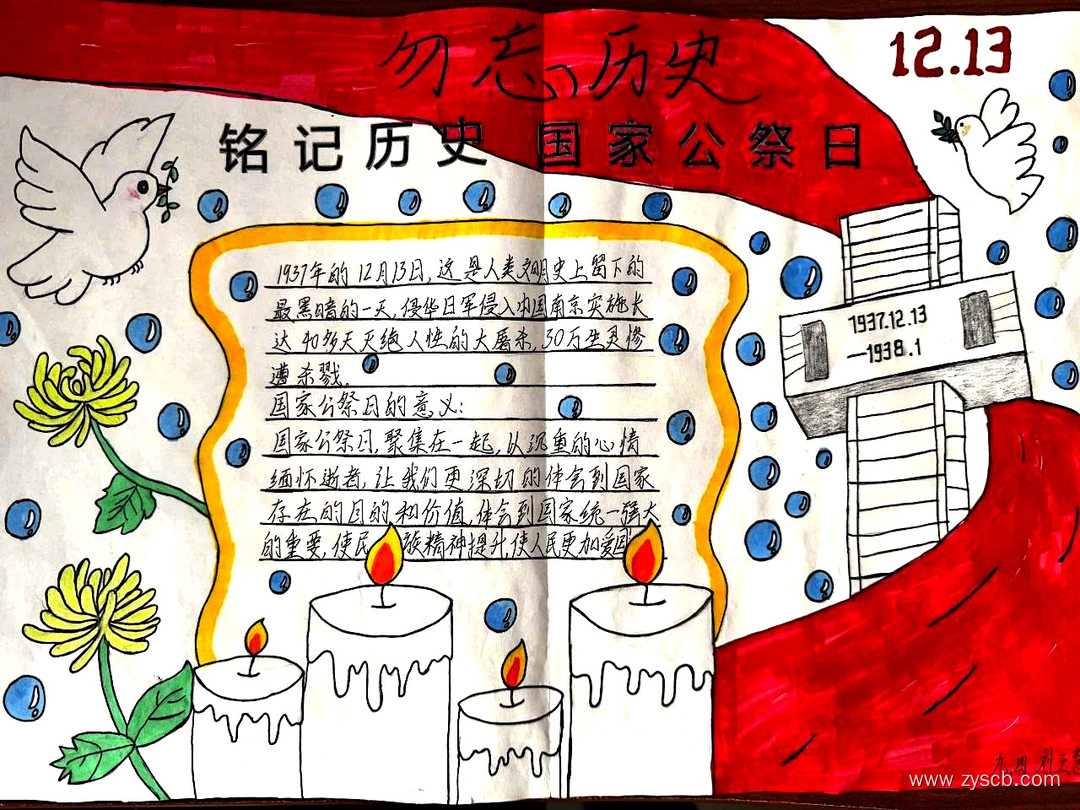 勿忘历史
12.13
铭记历史 国家公祭日
1937年的12月13日,这是人类文明史上留下的
最黑暗的一天,侵华日军侵入中国南京实施长
达40多天灭绝人性的大屠杀,30万生灵惨
遭杀戮.
国家公祭日的意义:
国家公祭日,聚集在一起,以沉重的心情
缅怀逝者,让我们更深切的体会到国家
存在的目的和价值,体会到国家统一强大
的重要,使民族精神提升,使人民更加爱国
1937.12.13
—1938.1
九.四 刘
www.zyscb.com